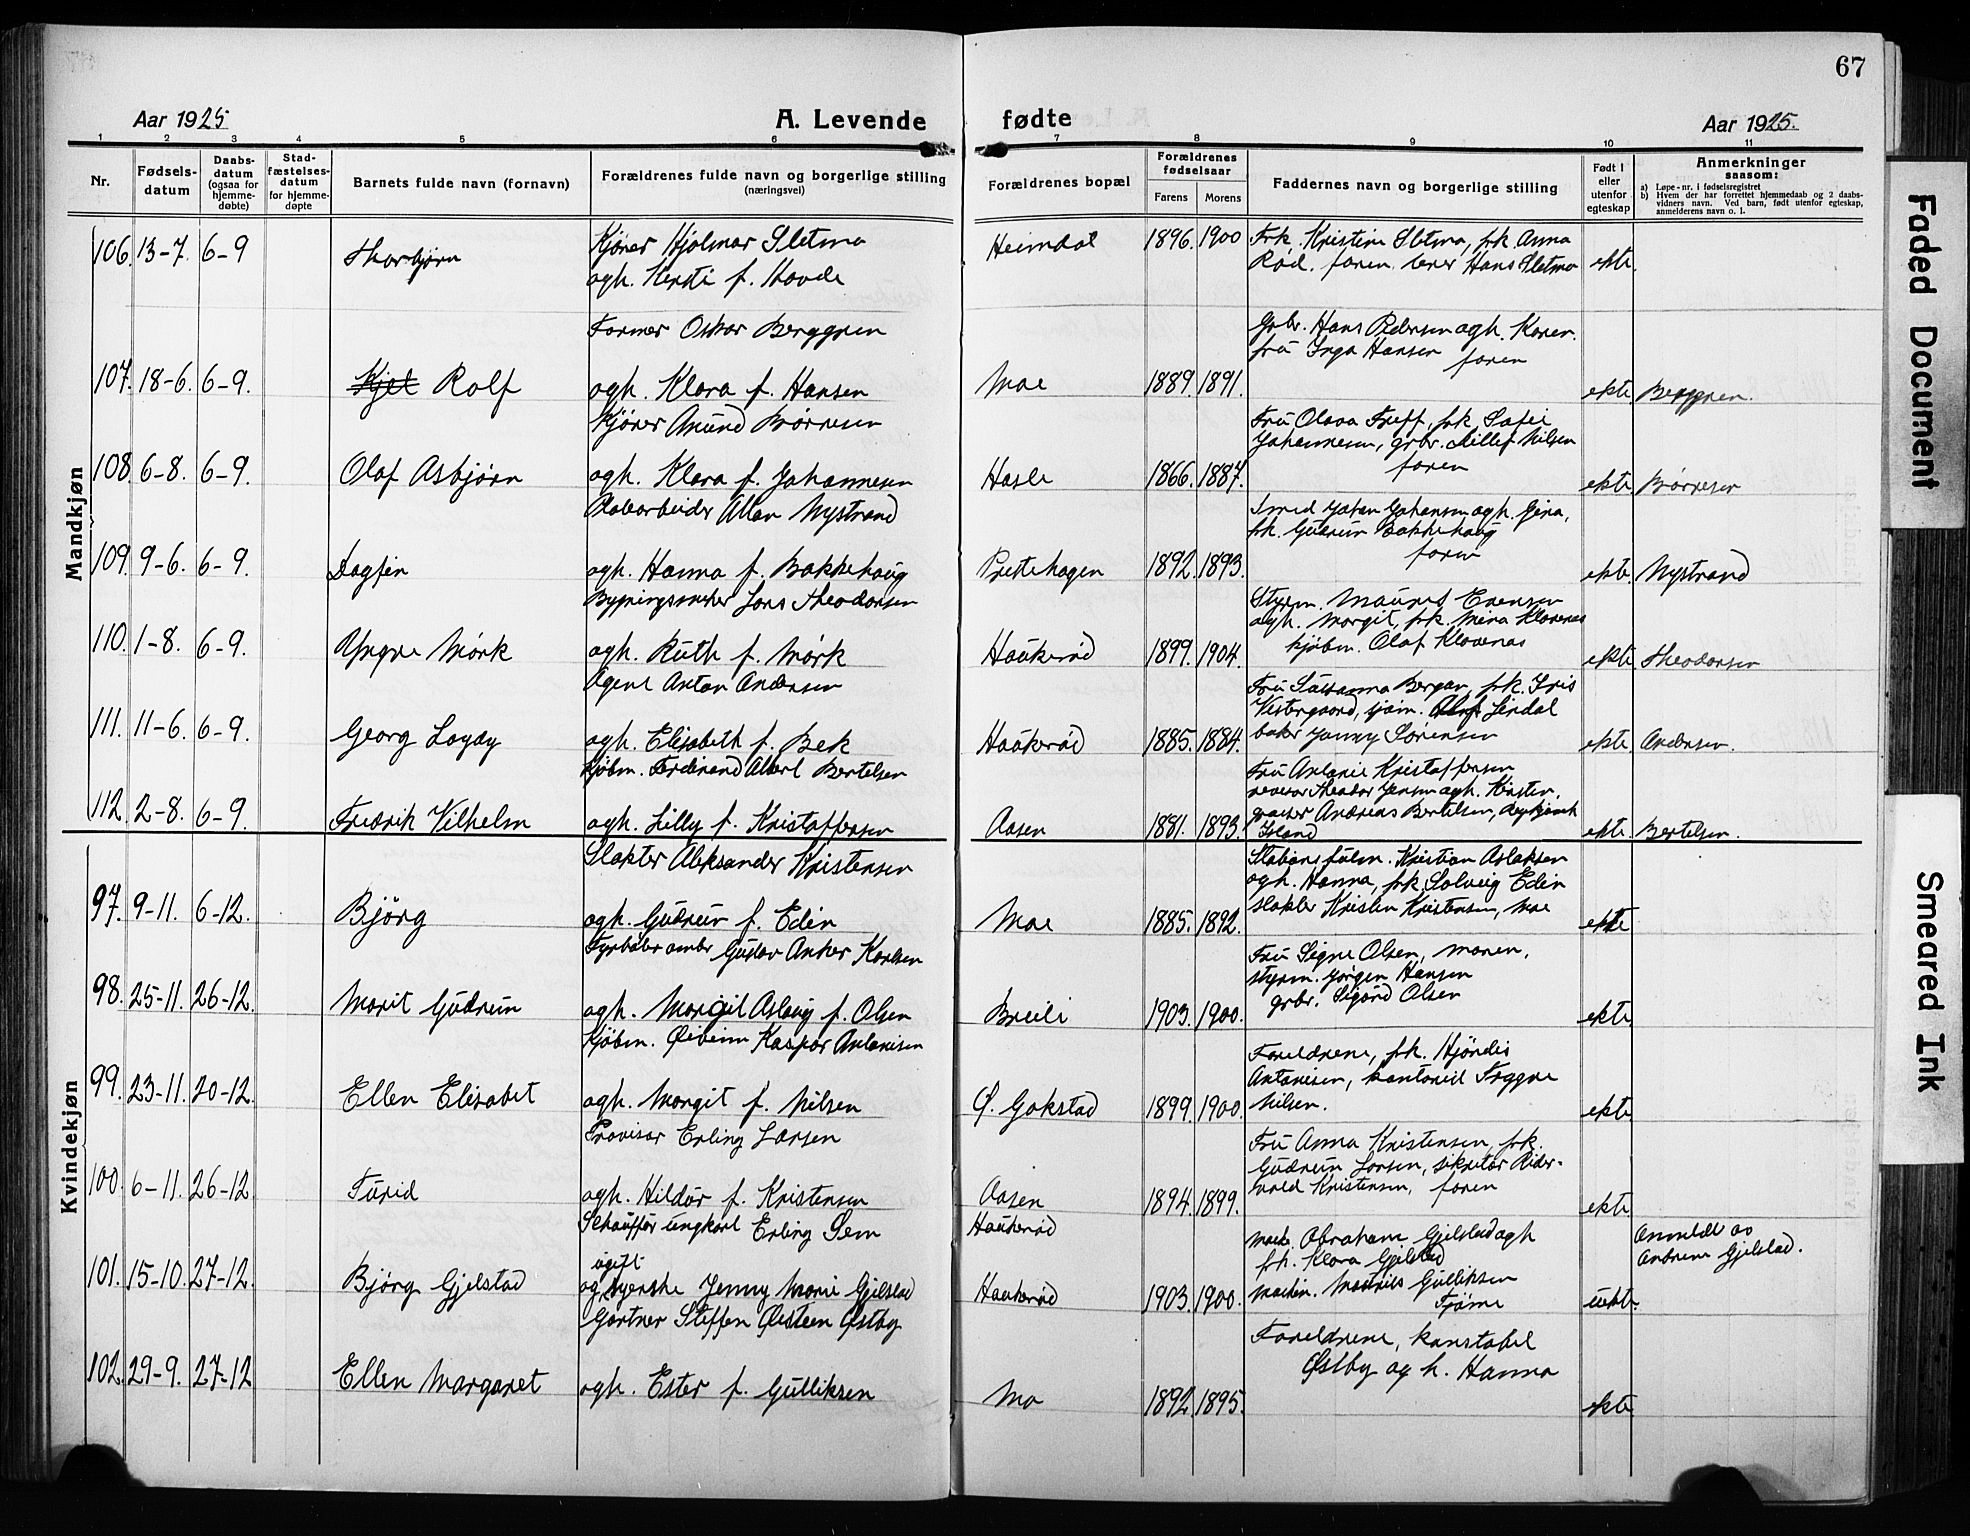 67
Aar 1925
A. Levende
fødte
Aar 1925.
1 2 3 4 5 6 7 8 9 10 11
Nr.
Fødsels-
datum
Daabs-
datum
(ogsaa for
hjemme-
døbte)
Stad-
fæstelses-
datum
for hjemme-
døpte
Barnets fulde navn (fornavn)
Forældrenes fulde navn og borgerlige stilling
(næringsvei)
Forældrenes bopæl
Forældrenes
fødselsaar
Farens Morens
Faddernes navn og borgerlige stilling
Født i
eller
utenfor
egteskap
Anmerkninger
saasom:
a) Løpe-nr. i fødselsregistret
b) Hvem der har forrettet hjemmedaab og 2 daabs-
vidners navn. Ved barn, født utenfor egteskap,
anmelderens navn o. l.
Mandkjøn
106. 13-7. 6-9 Thorbjørn
Kjører Hjalmar Sletmo
agh. Kersti f. Hovde
Heimdal 1896. 1900
Frk. Kristine Sletmo, frk. Anna
Rød. faren. lærer Hans Sletmo
ekte.
107. 18-6. 6-9. Kjel Rolf
Former Oskar Berggren
agh. Klara f. Hansen
Moe 1889. 1891.
Grbr. Hans Pedersen agh. Karen.
fru Inga Hansen faren
ekte. Berggren.
108. 6-8. 6-9. Olaf Asbjørn
Kjører Anund Børresen
agh. Klara f. Johannesen
Hasle 1866. 1887.
Fru Olava Treff, frk. Sofie
Johannesen, grbr. Nilsen
faren
ekte Børresen
109. 9-6. 6-9. Dagfin
Allan Nystrand
agh. Hanna f. Bakkehaug
Prestehagen 1892. 1893.
Smed Johan Johansen agh. Gina,
frk. Gudrun Bakkehaug
faren
ekte Nystrand
110. 1-8. 6-9. Yngve Mørk
Lars Theodorsen
agh. Ruth f. Mørk
Haukerød 1899. 1904.
Styrm. Evensen
agh. Margit, frk. Mina Klavenes
kjøbm. Olaf Klavenes
ekte. Theodorsen
111. 11-6. 6-9. Georg
Agent Anton Andersen
agh. Elisabeth f. Bek
Haukerød 1885. 1884.
Fru Susanna Bergan, frk. Iris
Vestergaard, sjøm. Lindal
baker Jonny Sørensen
ekte Andersen.
112. 2-8. 6-9. Fredrik Vilhelm
Kjøbm. Ferdinand Albert Bertelsen
agh. Lilly f. Kristoffersen
Aasen 1881. 1893.
Fru Antonie Kristoffersen
revisor Theodor Jensen agh. Kirsten,
Andreas Bertelsen, Reykjavik
Island
ekte Bertelsen.
Kvindekjøn
97. 9-11. 6-12. Bjørg
Slakter Aleksander Kristensen
agh. Gudrun f. Edin
Moe 1885. 1892.
Kristian Aslaksen
agh. Hanna, frk. Solveig Edin
slakter Kristen Kristensen, Moe
ekte
98. 25-11. 26-12. Marit Gudrun
Gustav Anker Karlsen
agh. Margit Aslaug f. Olsen
Breili 1903. 1900.
Fru Signe Olsen, moren,
styrm. Jørgen Hansen
grbr. Sigurd Olsen
ekte.
99. 23-11. 20-12. Ellen Elisabet
Kjøbm. Øivinn Kaspar Antonisen
agh. Margit f. Nilsen
Ø. Gokstad 1899. 1900.
Foreldrene, frk. Hjørdis
Antonisen, kontorist Trygve
Nilsen.
ekte
100. 6-11. 26-12. Turid
Provisor Erling Larsen
agh. Hildur f. Kristensen
Aasen 1894. 1899.
Fru Anna Kristensen, frk.
Gudrun Larsen, sekretær Rider-
vold Kristensen, faren
ekte.
101. 15-10. 27-12. Bjørg Gjelstad
Schauffør ungkarl Erling Sem
ugift
Jenny Marie Gjelstad
Haukerød
Haukerød 1903. 1900.
Abraham Gjelstad agh
frk. Klara Gjelstad
maskin. Gulliksen
Tjøme
uekte.
Anmeldt av
Gjelstad.
102. 29-9. 27-12 Ellen Margaret
Gartner Steffen Østby
agh. Ester f. Gulliksen
Mo 1892 1895.
Foreldrene, konstabel
Østby og h. Hanna
ekte
Faded Document
Smeared Ink